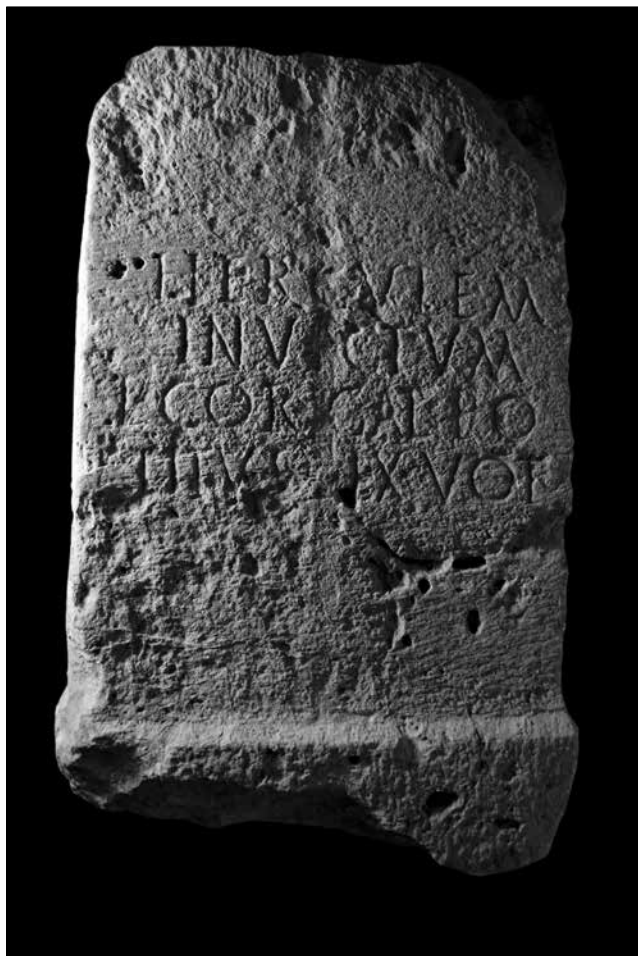 HERCVLEM
INVICTVM
COR
TITVS EX VOT